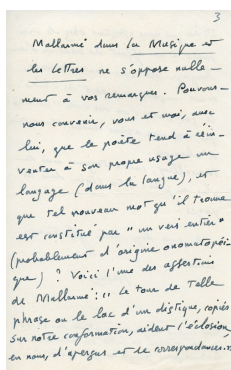 3
Mallarmé dans La Musique et
les Lettres ne s'oppose nulle-
ment à vos remarques. Pouvons-
nous convenir, vous et moi, avec
lui, que le poète tend à réin-
venter à son propre usage un
langage (dans la langue), et
que tel nouveau mot qu'il trouve
est constitué par "un vers entier"
(probablement d'origine onomatopéi-
que) ? Voici l'une des assertions
de Mallarmé : "Le tour de telle
phrase ou le lac d'un distique, copiés
sur notre conformation, aident l'éclosion,
en nous, d'aperçus et de correspondances."